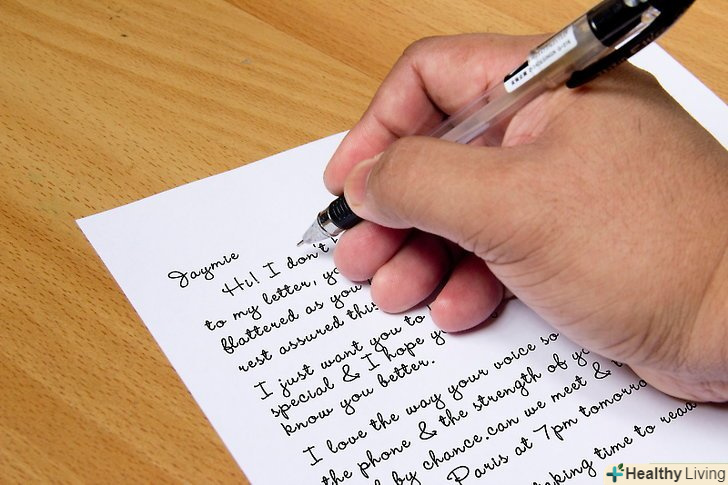 Jaymie
Hi! I don't
to my letter,
flattered as you
rest assured this
I just want you to
special & I hope
know you better.
I love the way your voice so
the phone & the strength of
by chance.can we meet &
Paris at 7pm tomorro
king time to read
Healthy Living